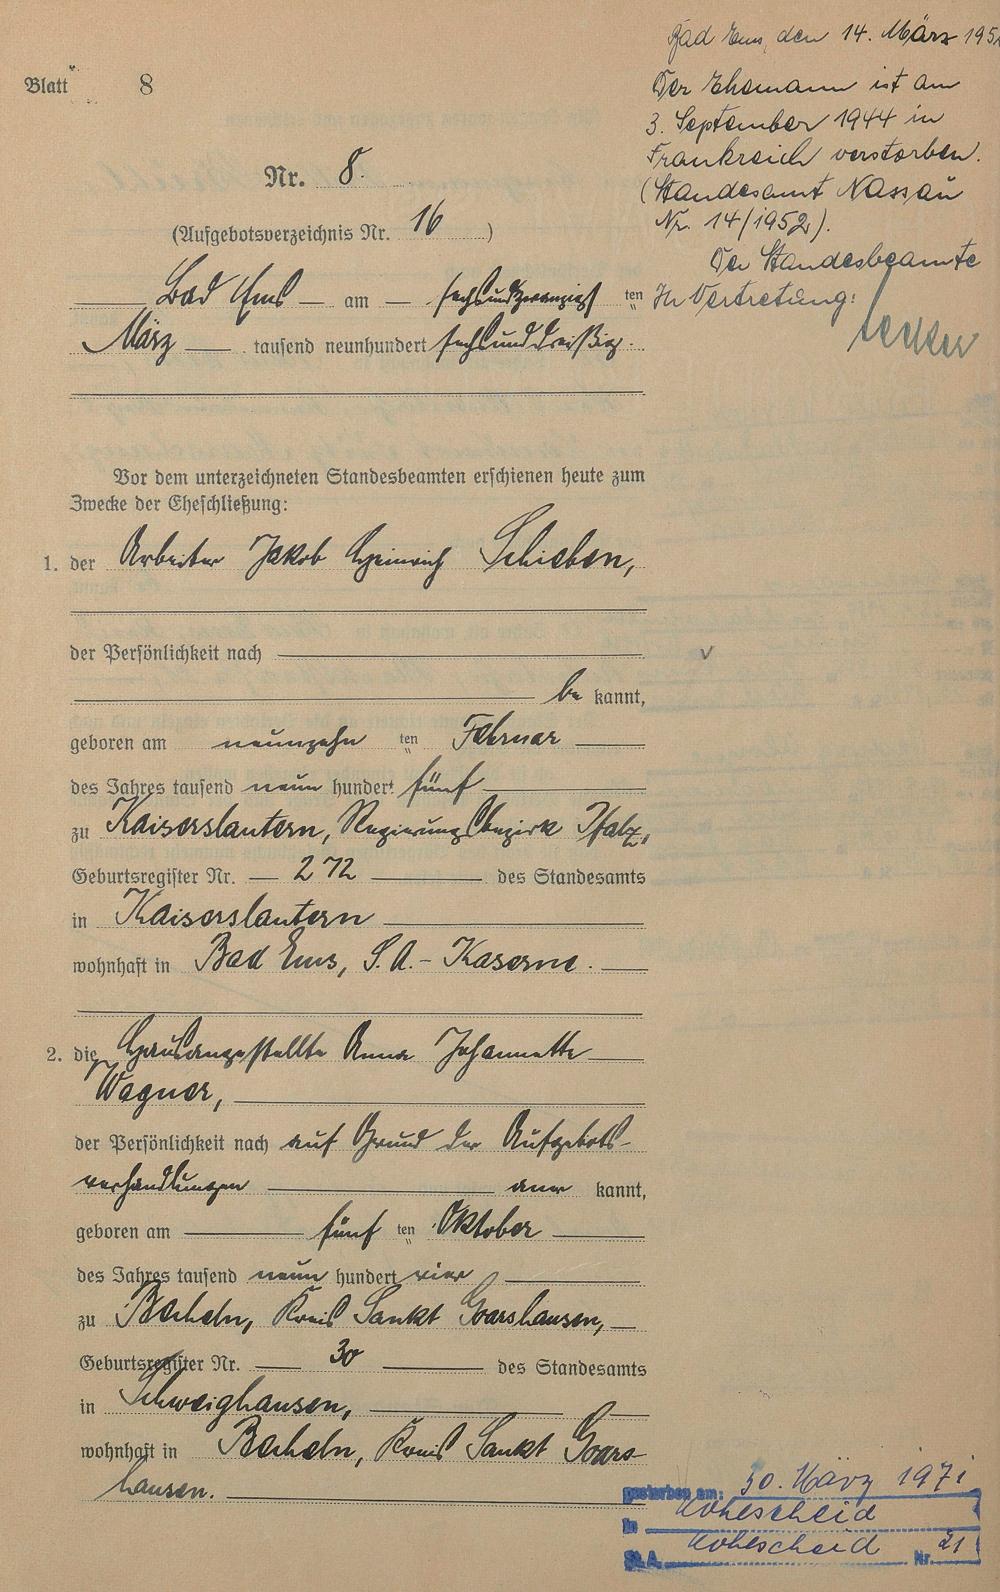 Blatt 8
Nr. 8.
(Aufgebotsverzeichnis Nr. 16)
Bad Ems am sechsundzwanzigsten
März tausend neunhundert sechsunddreißig.
Vor dem unterzeichneten Standesbeamten erschienen heute zum
Zwecke der Eheschließung:
1. der Arbeiter Jakob Heinrich Schieben,
der Persönlichkeit nach
be kannt,
geboren am neunzehn ten Februar
des Jahres tausend neun hundert fünf
zu Kaiserslautern, Regierungsbezirk Pfalz,
Geburtsregister Nr. 272 des Standesamts
in Kaiserslautern
wohnhaft in Bad Ems, S.A.-Kaserne.
2. die Hausangestellte Anna Johannette
Wagner,
der Persönlichkeit nach auf Grund der Aufgebots-
verhandlungen aner kannt,
geboren am fünf ten Oktober
des Jahres tausend neun hundert vier
zu Becheln, Kreis Sankt Goarshausen,
Geburtsregister Nr. 30 des Standesamts
in Schweighausen,
wohnhaft in Becheln, Kreis Sankt Goars-
hausen.
Bad Ems, den 14. März
Der Ehemann ist am
3. September 1944 in
Frankreich verstorben.
(Standesamt Nassau
Nr. 14/1952).
Der Standesbeamte
In Vertretung:
gestorben am: 30. März 1971
in Kohlscheid
St. A. Kohlscheid Nr. 21